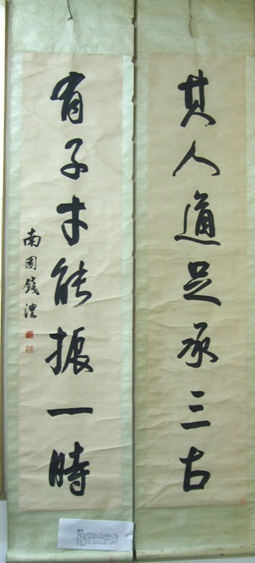 其人道足承三古
有子才能振一時
南園錢灃